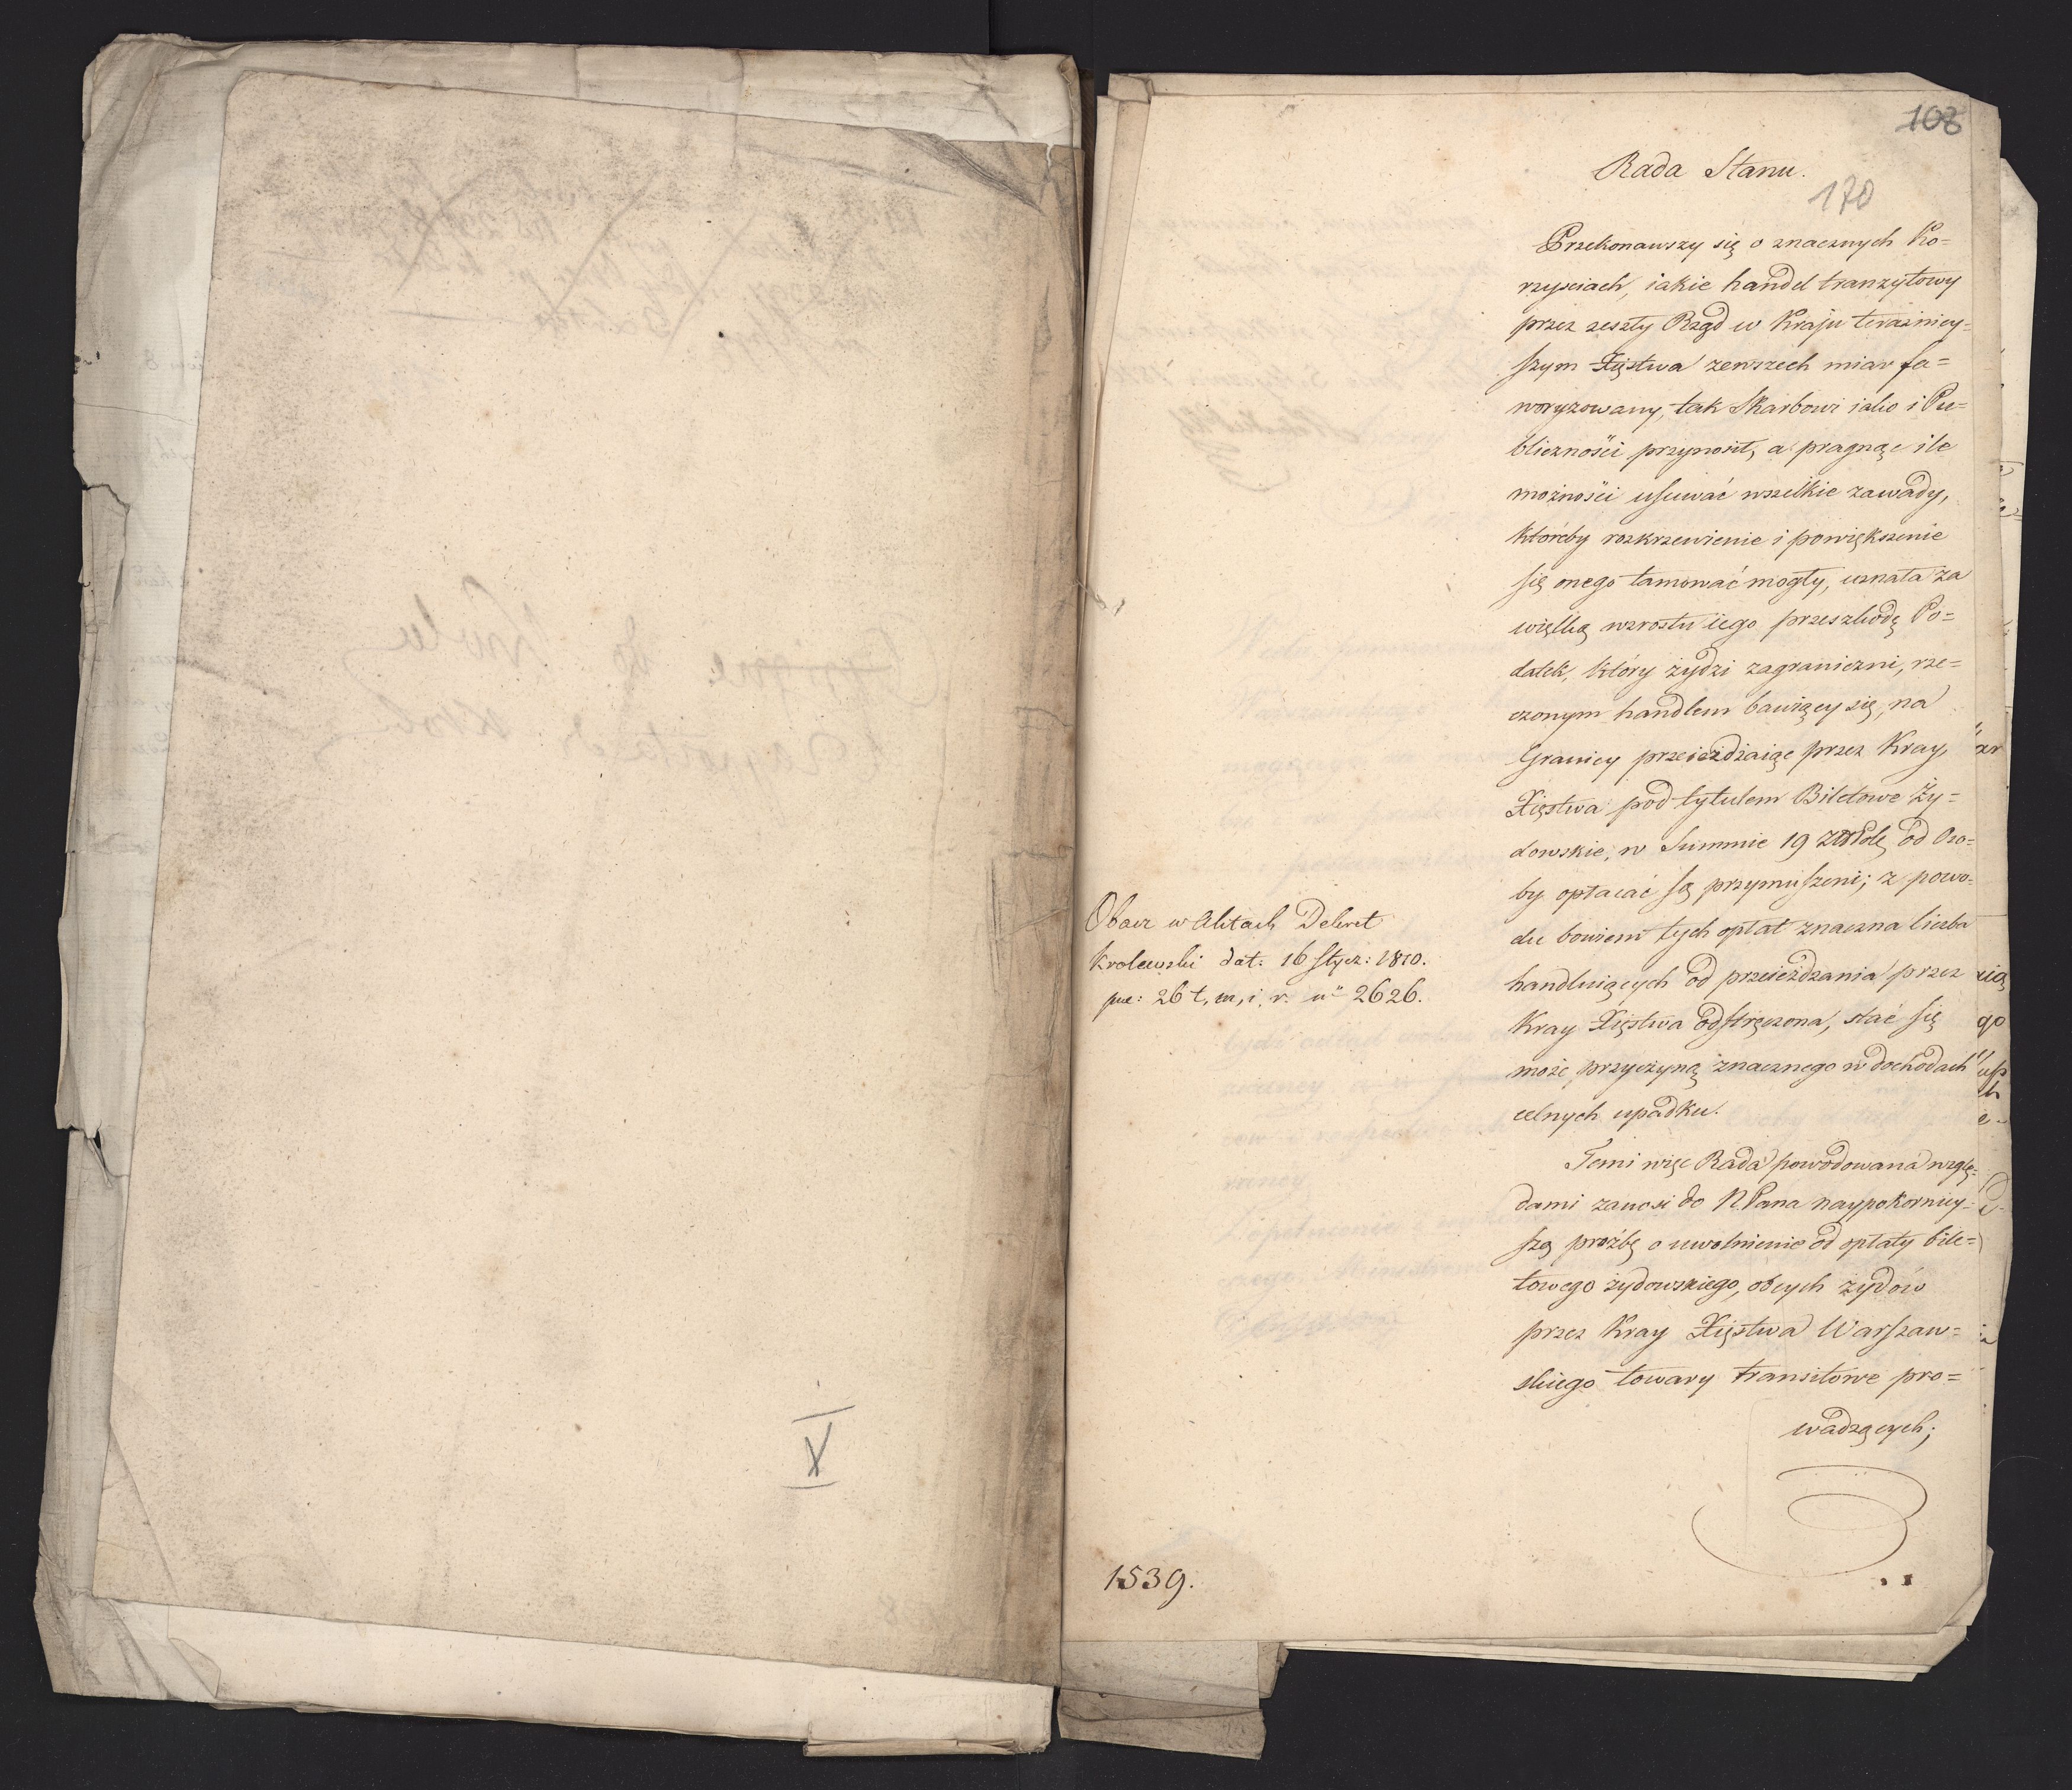 X
108
Rada Stanu.
170
Przekonawszy się o znacznych Ko=
rzysciach, iakie handel tranzytowy
przez zeszły Rząd w Kraju teraźniey=
szym Xięstwa zewszech miar fa=
woryzowany, tak Skarbowi iako i Pu=
bliczności przynosił, a pragnąc ile
możności usuwać wszelkie zawady,
któreby rozkrzewienie i powiększenie
się onego tamować mogły, uznała za
wielką wzrostu iego przeszkodę Po=
datek, który żydzi zagraniczni, rze=
czonym handlem bawiący się, na
Granicy przeieżdżaiąc przez Kray
Xięstwa pod tytułem Biletowe Ży=
dowskie, w Summie 19 od Oso=
by opłacać są przymuszeni; z powo=
du bowiem tych opłat znaczna liczba
handluiących od przeieżdzania przez
Kray Xięstwa odstręczona, stać się
może przyczyną znacznego w dochodach
celnych upadku.
Temi więc Rada powodowana wzglę=
dami zanosi do N. Pana naypokorniey=
szą proźbę o uwolnienie od opłaty bile=
towego żydowskiego, obcych żydów
przez Kray Xięstwa Warszaw=
skiego towary transitowe pro=
wadzących;
Obacz w Aktach Dekret
Krolewski dat: 16 Stycz: 1810.
26 t, m, i, r. n° 2626.
1539.